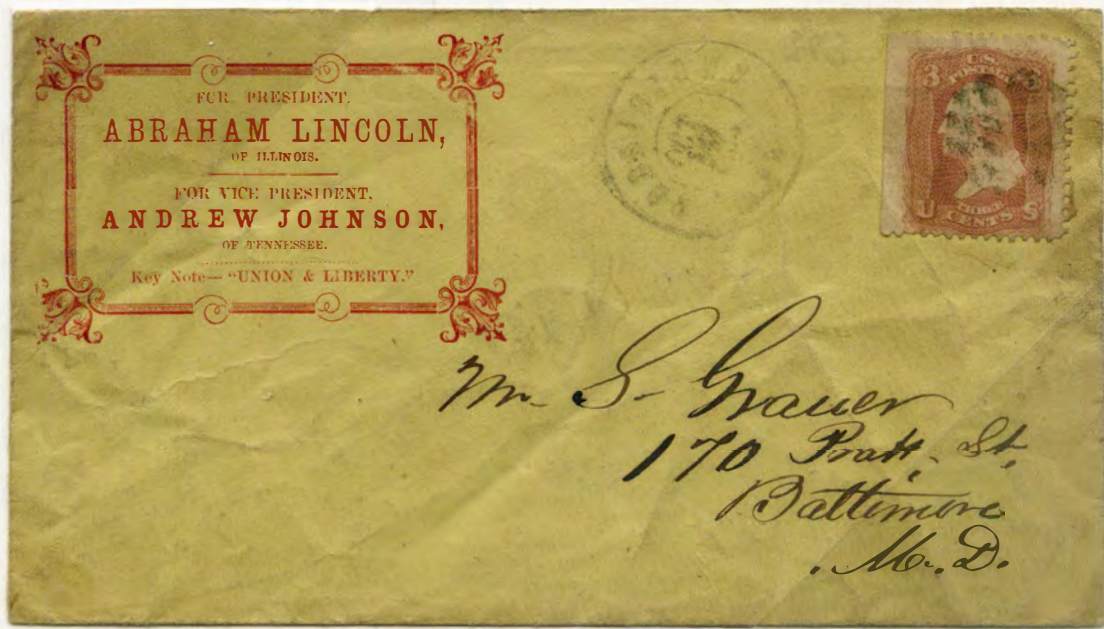 FOR PRESIDENT.
ABRAHAM LINCOLN,
OF ILLINOIS.
FOR VICE PRESIDENT,
ANDREW JOHNSON,
OF TENNESSEE.
Key Note— "UNION & LIBERTY."
3 3
U.S.
POSTAGE
U THREE S
CENTS
Mr. S. Grauer
170 Pratt. St.
Baltimore
M. D.